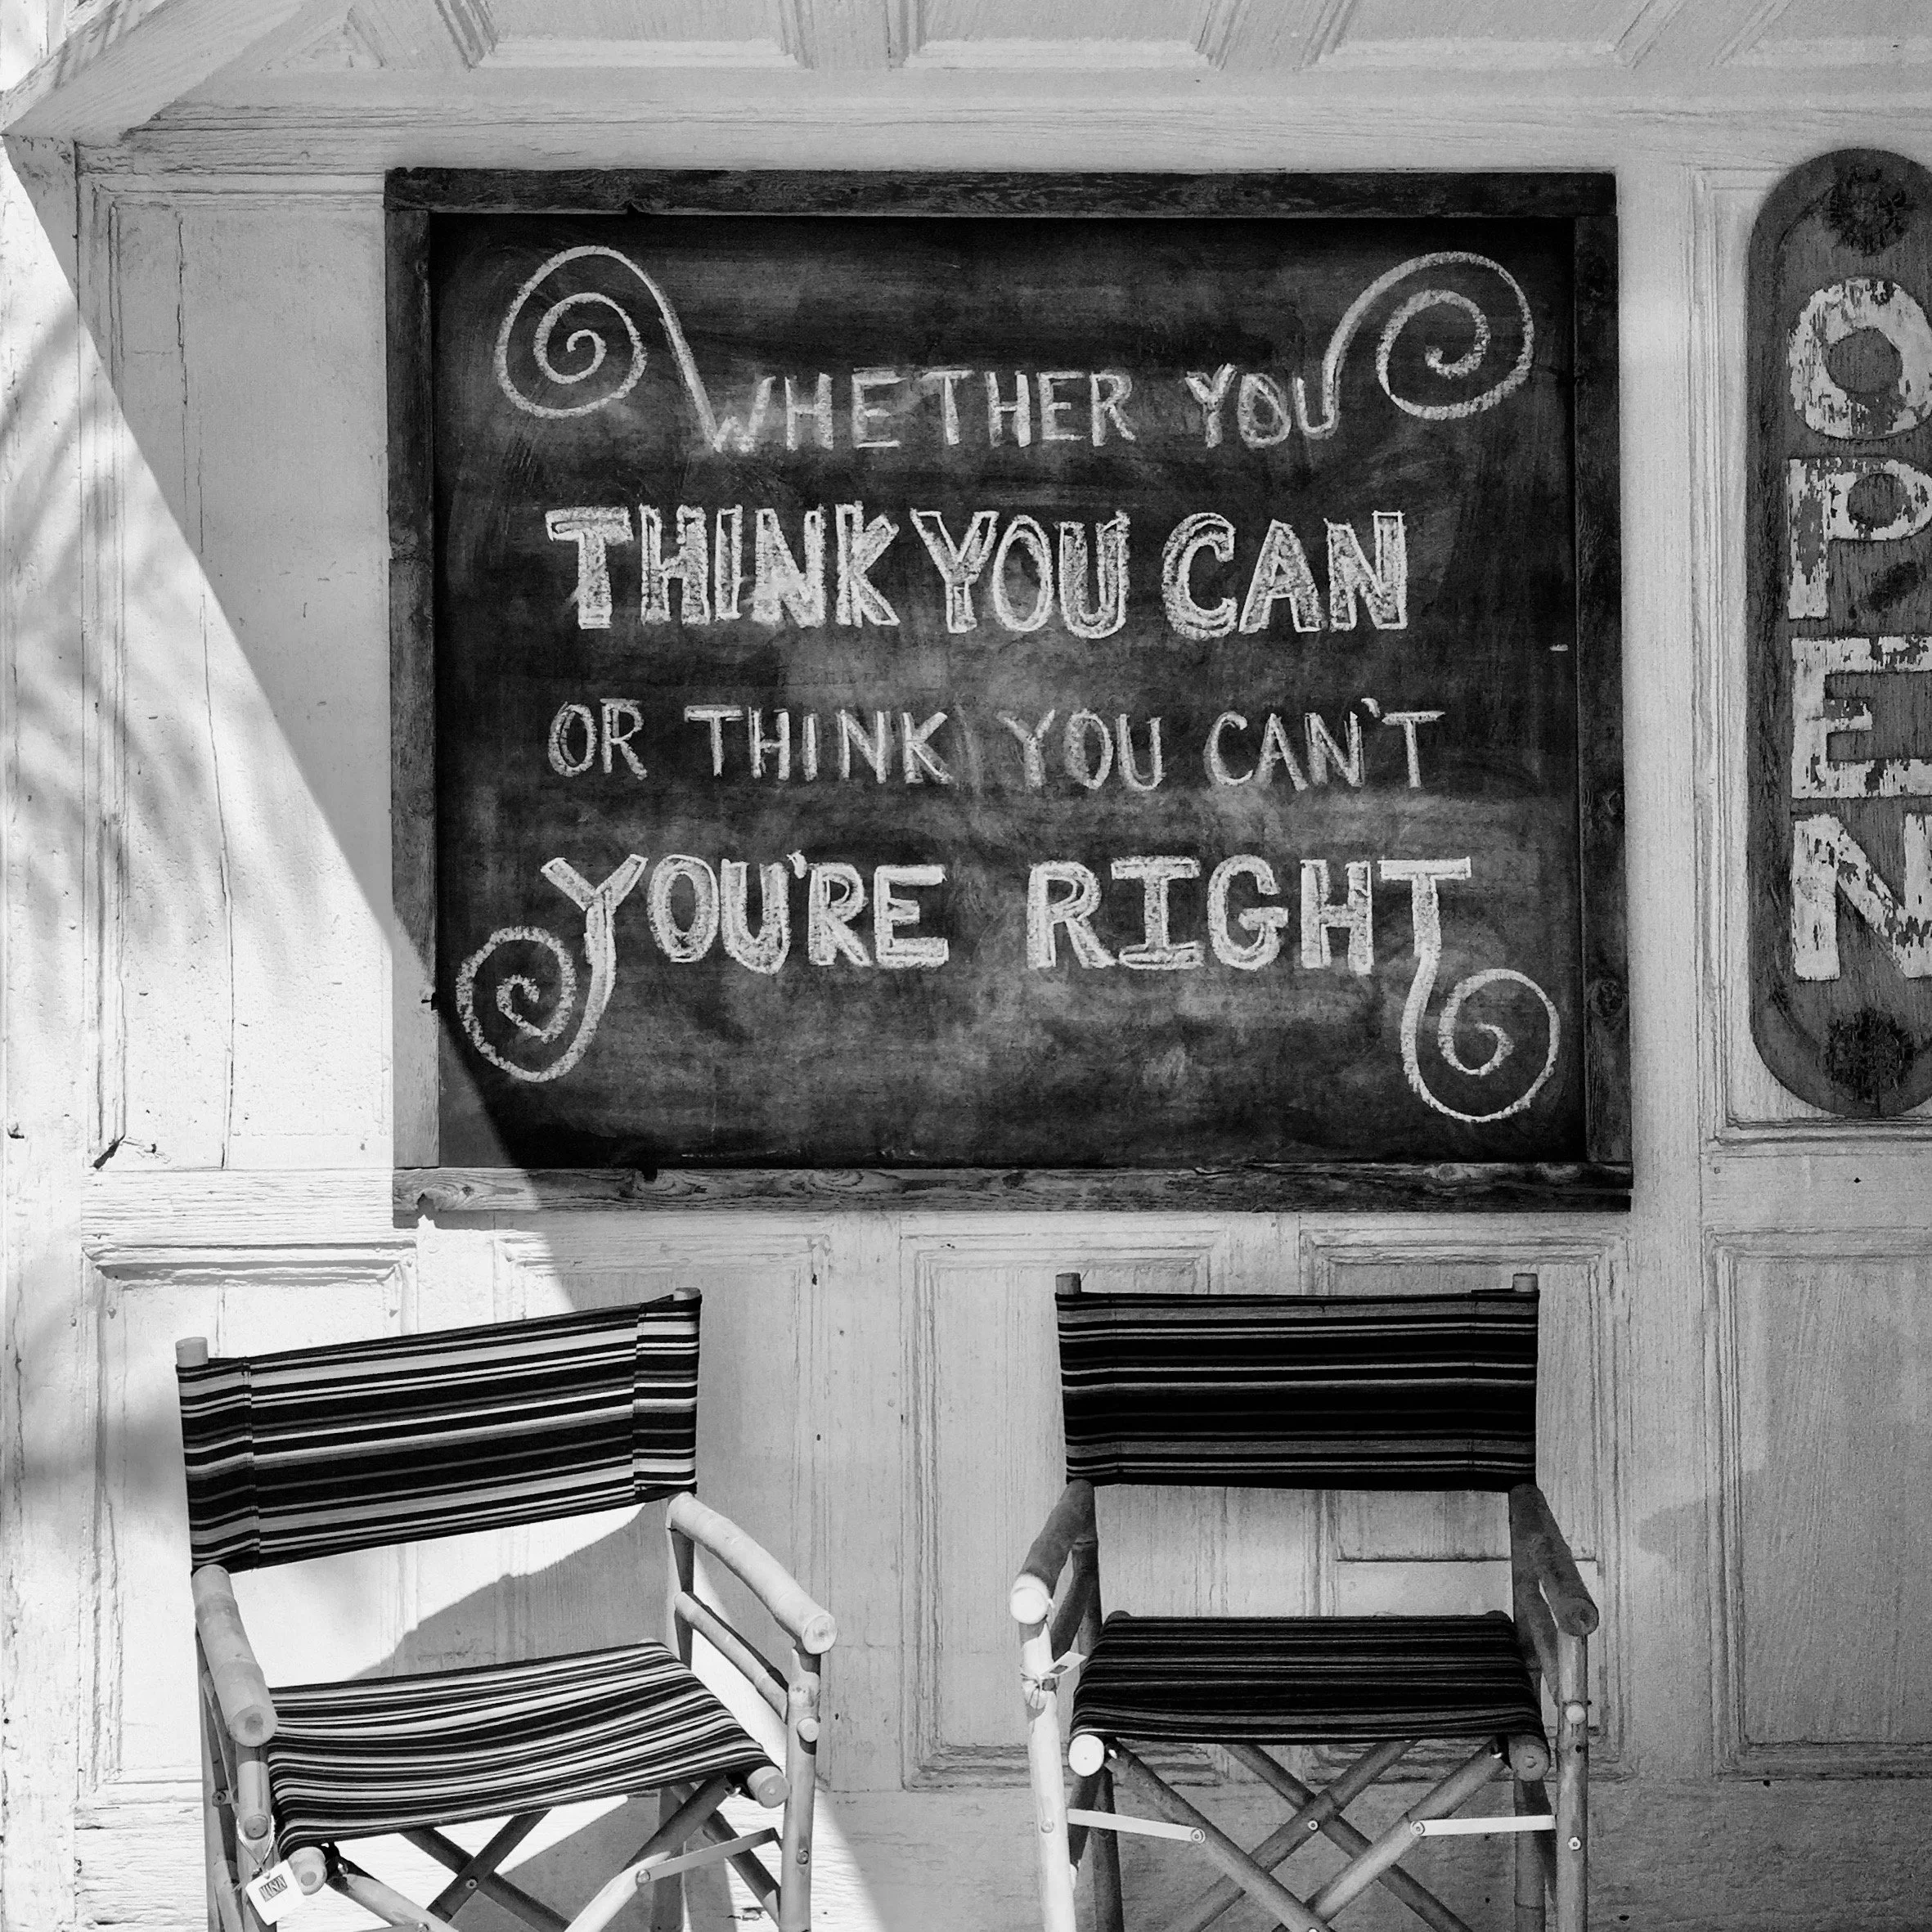 WHETHER YOU
THINK YOU CAN
OR THINK YOU CAN'T
YOU'RE RIGHT
OPEN